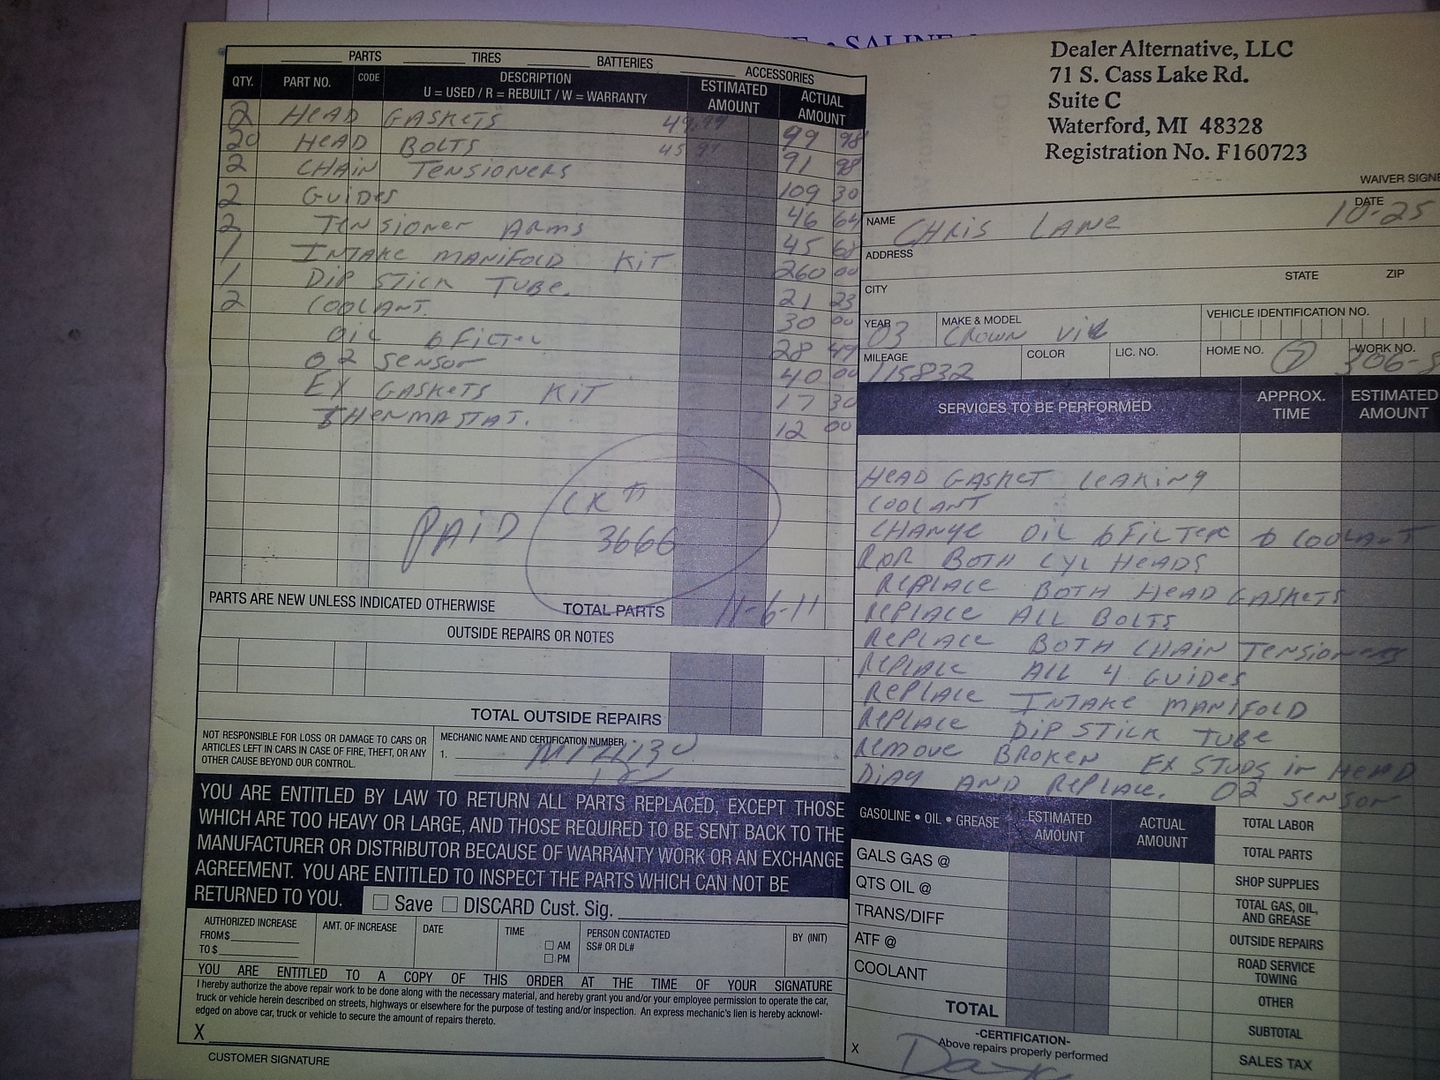 SALINE
PARTS TIRES BATTERIES ACCESSORIES
QTY. PART NO. CODE DESCRIPTION U = USED / R = REBUILT / W = WARRANTY ESTIMATED AMOUNT ACTUAL AMOUNT
2 HEAD GASKETS 49.99 99 98
20 HEAD BOLTS 45.97 91 98
2 CHAIN TENSIONERS 109 30
2 GUIDES 46 64
2 TENSIONER ARMS 45 68
1 INTAKE MANIFOLD KIT 260 00
1 DIP STICK TUBE. 21 23
2 COOLANT. 30 00
OIL & FILTER 28 49
O2 SENSOR 40 00
EX GASKETS KIT 17 30
THERMASTAT. 12 00
PAID CK # 3666
PARTS ARE NEW UNLESS INDICATED OTHERWISE TOTAL PARTS 11-6-11
OUTSIDE REPAIRS OR NOTES
TOTAL OUTSIDE REPAIRS
NOT RESPONSIBLE FOR LOSS OR DAMAGE TO CARS OR
ARTICLES LEFT IN CARS IN CASE OF FIRE, THEFT, OR ANY
OTHER CAUSE BEYOND OUR CONTROL.
MECHANIC NAME AND CERTIFICATION NUMBER
1.
YOU ARE ENTITLED BY LAW TO RETURN ALL PARTS REPLACED, EXCEPT THOSE
WHICH ARE TOO HEAVY OR LARGE, AND THOSE REQUIRED TO BE SENT BACK TO THE
MANUFACTURER OR DISTRIBUTOR BECAUSE OF WARRANTY WORK OR AN EXCHANGE
AGREEMENT. YOU ARE ENTITLED TO INSPECT THE PARTS WHICH CAN NOT BE
RETURNED TO YOU. Save DISCARD Cust. Sig.
AUTHORIZED INCREASE AMT. OF INCREASE DATE TIME PERSON CONTACTED BY (INIT)
FROM $ AM SS# OR DL#
TO $ PM
YOU ARE ENTITLED TO A COPY OF THIS ORDER AT THE TIME OF YOUR SIGNATURE
I hereby authorize the above repair work to be done along with the necessary material, and hereby grant you and/or your employee permission to operate the car,
truck or vehicle herein described on streets, highways or elsewhere for the purpose of testing and/or inspection. An express mechanic's lien is hereby acknowl-
edged on above car, truck or vehicle to secure the amount of repairs thereto.
X
CUSTOMER SIGNATURE
Dealer Alternative, LLC
71 S. Cass Lake Rd.
Suite C
Waterford, MI 48328
Registration No. F160723
WAIVER SIGNE
NAME CHRIS LANE DATE 10-25
ADDRESS
CITY STATE ZIP
YEAR 03 MAKE & MODEL CROWN VIC VEHICLE IDENTIFICATION NO.
MILEAGE 115832 COLOR LIC. NO. HOME NO. WORK NO. 306-
SERVICES TO BE PERFORMED APPROX. TIME ESTIMATED AMOUNT
HEAD GASKET LEAKING
COOLANT
CHANGE OIL & FILTER & COOLANT
R&R BOTH CYL HEADS
REPLACE BOTH HEAD GASKETS
REPLACE ALL BOLTS
REPLACE BOTH CHAIN TENSIONERS
REPLACE ALL 4 GUIDES
REPLACE INTAKE MANIFOLD
REPLACE DIP STICK TUBE
REMOVE BROKEN EX STUDS IN HEAD
DIAG AND REPLACE. O2 SENSOR
GASOLINE • OIL • GREASE ESTIMATED AMOUNT ACTUAL AMOUNT
GALS GAS @
QTS OIL @
TRANS/DIFF
ATF @
COOLANT
TOTAL
-CERTIFICATION-
Above repairs properly performed
X
TOTAL LABOR
TOTAL PARTS
SHOP SUPPLIES
TOTAL GAS, OIL, AND GREASE
OUTSIDE REPAIRS
ROAD SERVICE TOWING
OTHER
SUBTOTAL
SALES TAX